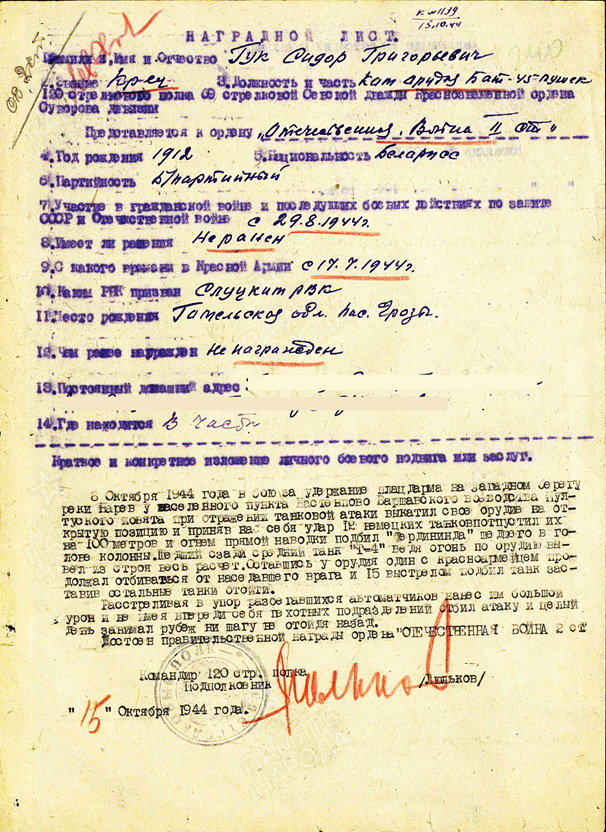 К №1139
15.10.44
НАГРАДНОЙ ЛИСТ.
Фамилия, Имя и Отчество Гук Сидор Григорьевич
2. Звание Кр-ец 3. Должность и часть Ком. орудия Бат. 45 пушек
120 Стрелкового полка 69 стрелковой Севской Дважды Краснознаменной ордена
Суворова дивизии
Представляется к ордену „Отечественная Война II ст"
4. Год рождения 1912 5. Национальность Беларнос
6. Партийность Б/партийный
7. Участие в гражданской войне и последующих боевых действиях по защите
СССР и Отечественной войне с 29.8.1944г.
8. Имеет ли ранения Не ранен
9. С какого времени в Красной Армии с 17.7.1944г.
10. Каким РВК призван Слуцкий РВК
11. Место рождения Гомельская обл. пос. Грозы.
12. Чем ранее награжден Не награжден
13. Постоянный домашний адрес
14. Где находится В части
Краткое и конкретное изложение личного боевого подвига или заслуг.
8 Октября 1944 года в бою за удержание плацдарма на западном берегу
реки Нарев у населенного пункта Мастенпово Варшавского воеводства Пул-
туского повята при отражении танковой атаки выкатил свое орудие на от-
крытую позицию и приняв на себя удар 12 немецких танков подпустил их
на 100 метров и огнем прямой наводки подбил "Фердинанда" шедшего в го-
лове колонны. Шедший сзади средний танк "Т-4" ведя огонь по орудию вы-
вел из строя весь расчет. Оставшись у орудия один с красноармейцем про-
должал отбиваться от наседавшего врага и 15 выстрелом подбил танк зас-
тавив остальные танки отойти.
Расстреливая в упор разбегавшихся автоматчиков нанес им большой
урон и не имея впереди себя пехотных подразделений отбил атаку и целый
день занимал рубеж ни шагу не отойдя назад.
Достоен правительственной награды ордена "ОТЕЧЕСТВЕННАЯ ВОЙНА 2 ст
Командир 120 стр. полка
Подполковник /Люльков/
"15" Октября 1944 года.